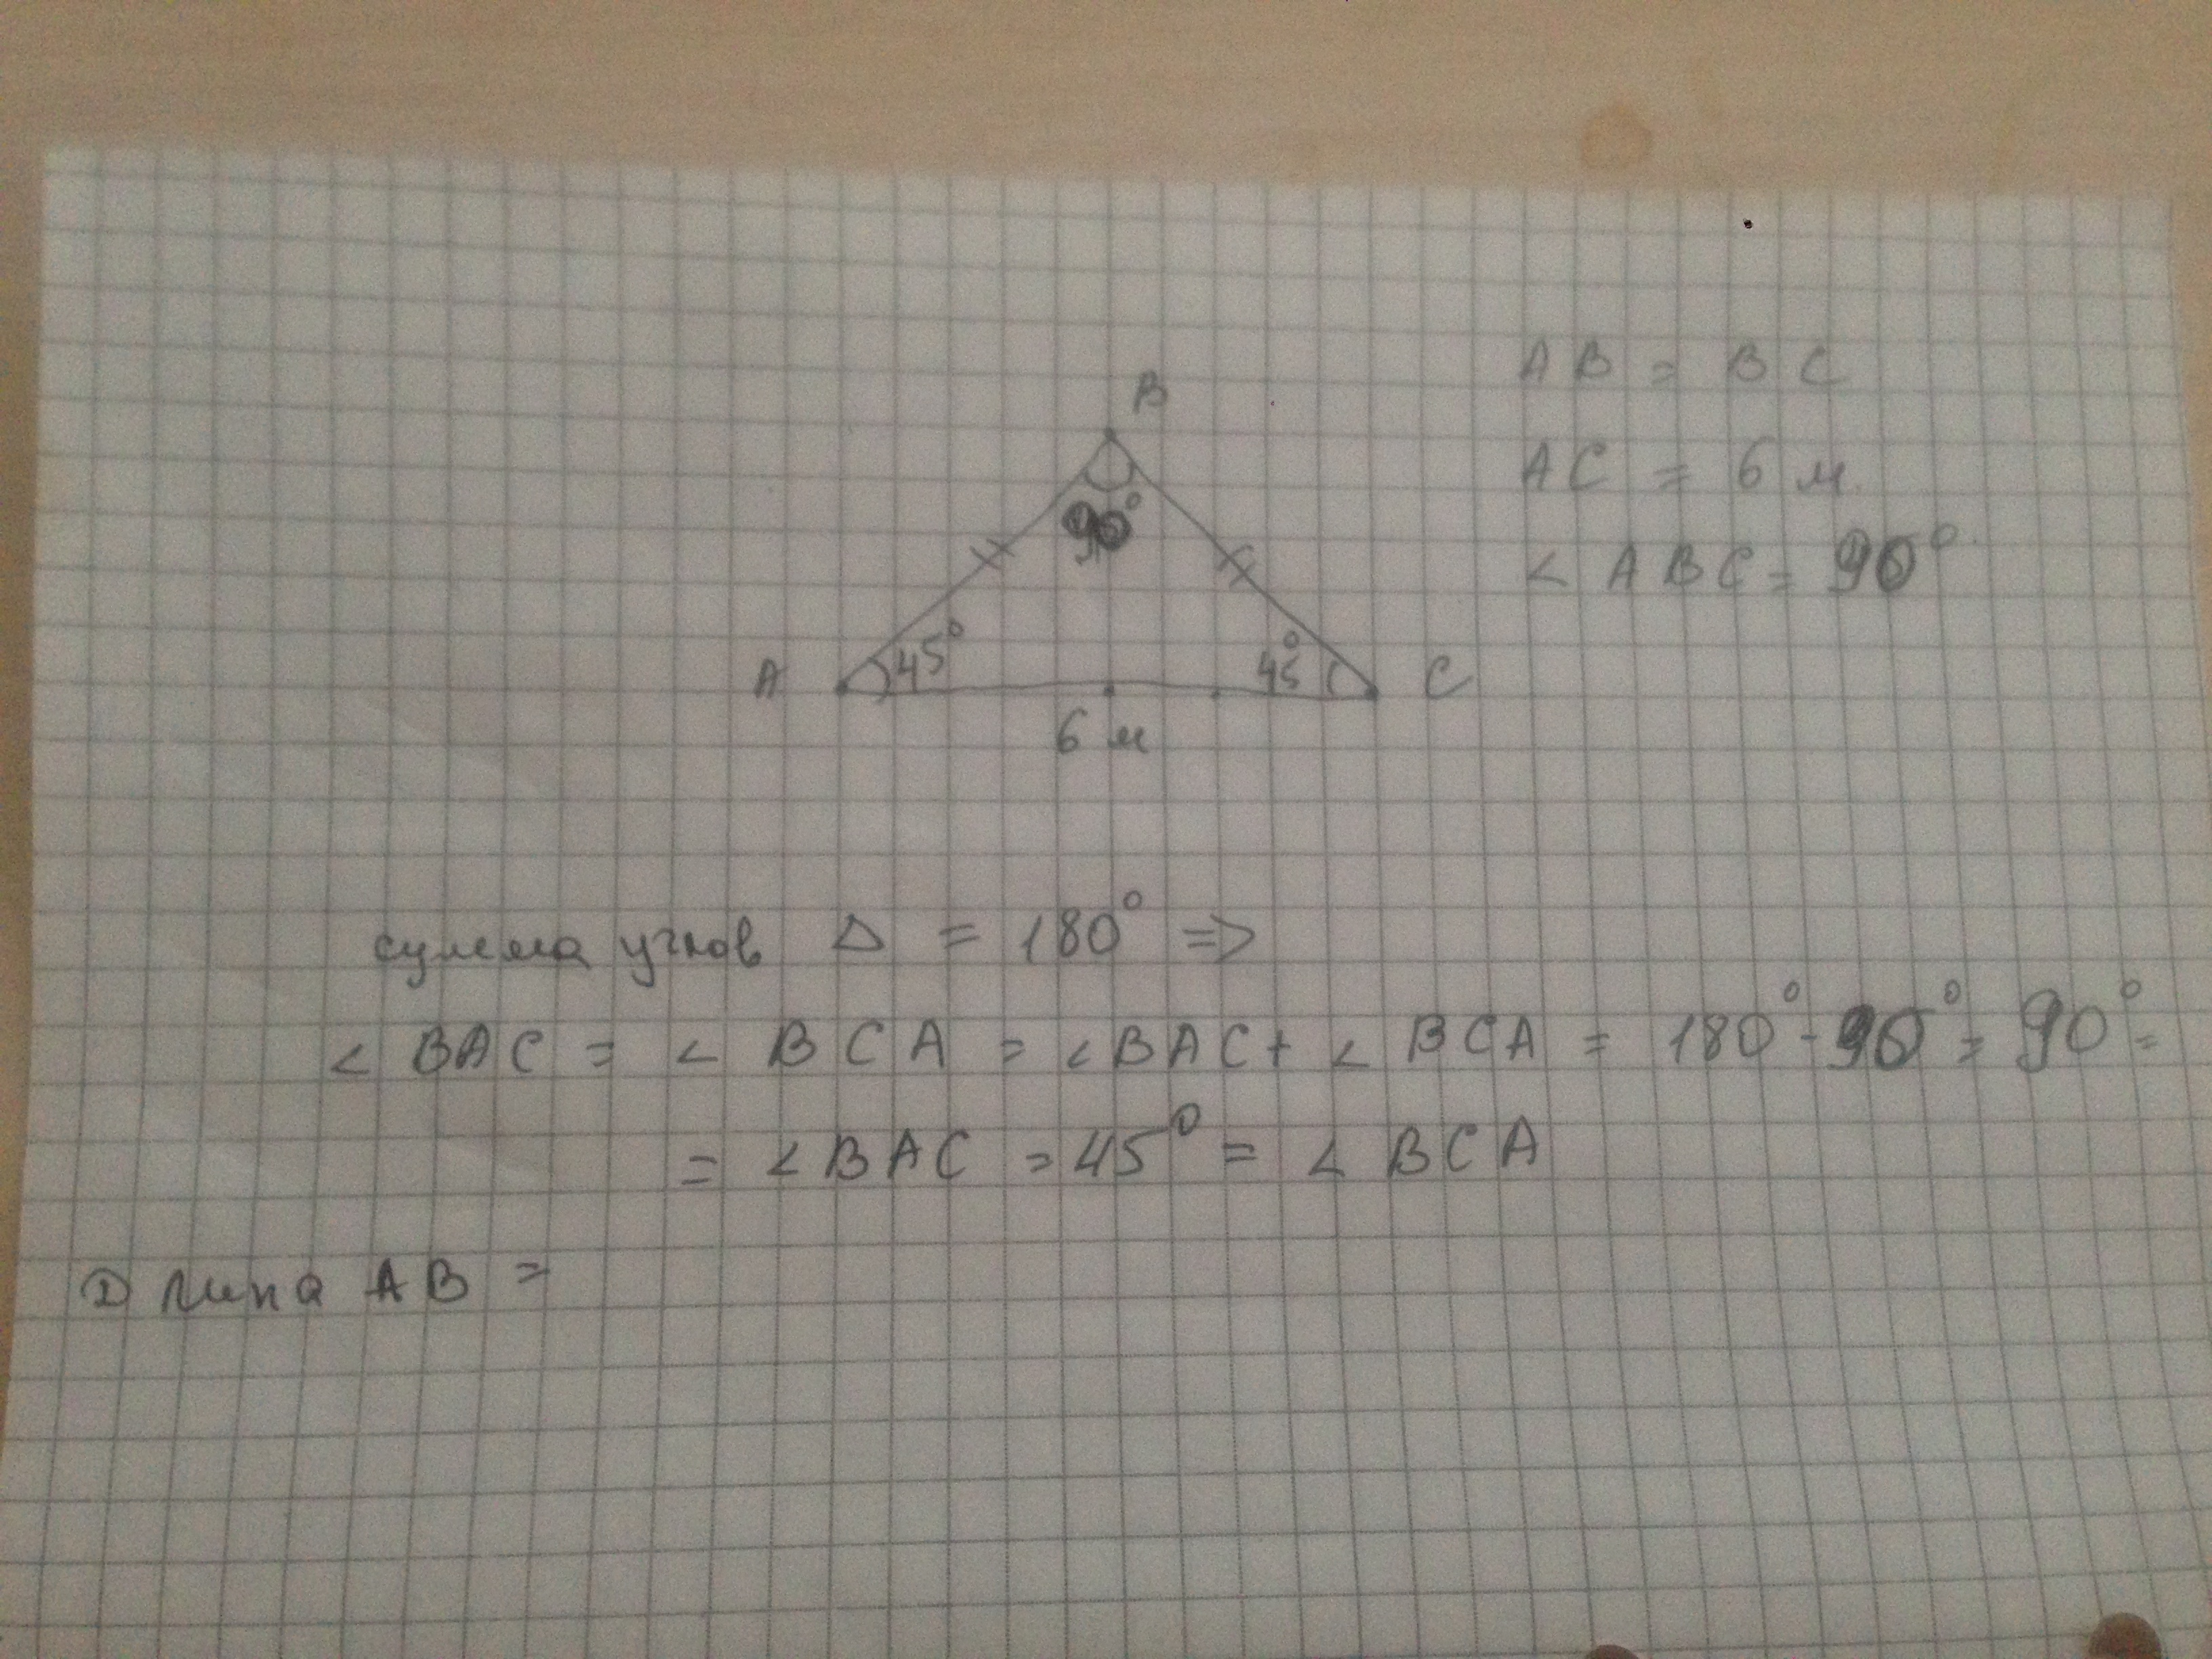 B
90°
45°
45°
A
C
6 м
AB = BC
AC = 6 м.
< ABC = 90°
сумма углов Δ = 180° =>
< BAC = < BCA = < BAC + < BCA = 180° - 90° = 90° =
= < BAC = 45° = < BCA
Длина AB =